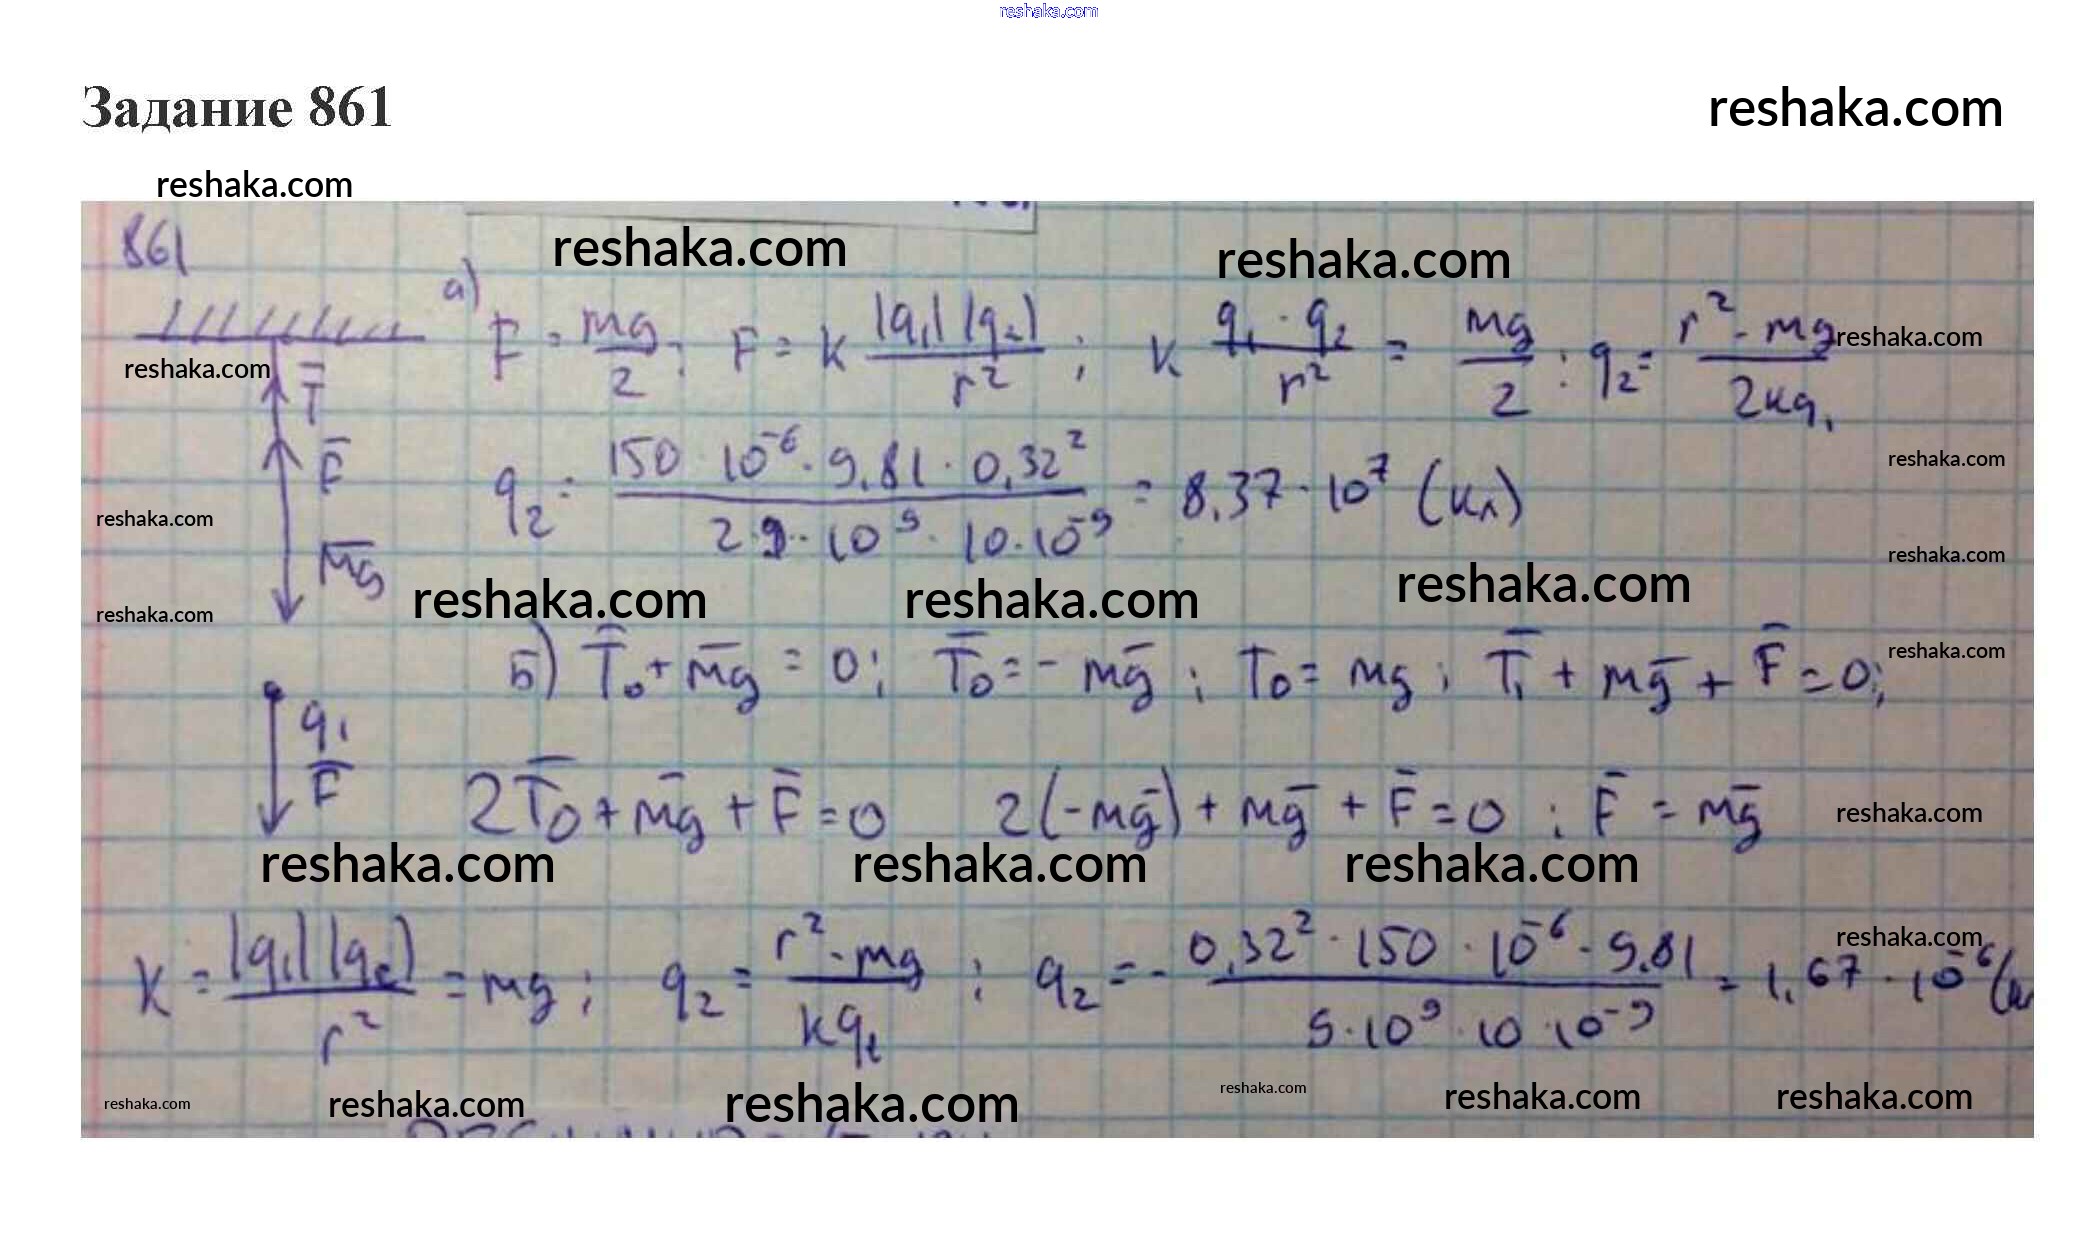 reshaka.com
Задание 861 reshaka.com
reshaka.com
861 reshaka.com reshaka.com
а) F = mg/2; F = k |q₁| |q₂| / r² ; k q₁ · q₂ / r² = mg/2 : q₂ = r² - mg / 2kq₁ reshaka.com
reshaka.com T̄
F̄ reshaka.com
q₂ = 150 · 10⁻⁶ · 9,81 · 0,32² / 2·9 · 10⁹ · 10·10⁻⁹ = 8,37 · 10⁷ (Кл)
reshaka.com
m̄g reshaka.com
reshaka.com reshaka.com reshaka.com reshaka.com
Б) T̄₀ + m̄g = 0; T̄₀ = - mḡ ; T₀ = mg ; T̄₁ + mḡ + F̄ = 0; reshaka.com
q₁
F̄
2T̄₀ + m̄g + F̄ = 0 2(-mḡ) + mḡ + F̄ = 0 ; F̄ = mḡ reshaka.com
reshaka.com reshaka.com reshaka.com
reshaka.com
K = |q₁| |q₂| / r² = mg ; q₂ = r² - mg / kq₁ ; q₂ = - 0,32² · 150 · 10⁻⁶ · 9,81 / 9·10⁹ · 10 · 10⁻⁹ = 1,67 · 10⁻⁶ (
reshaka.com reshaka.com reshaka.com reshaka.com reshaka.com reshaka.com